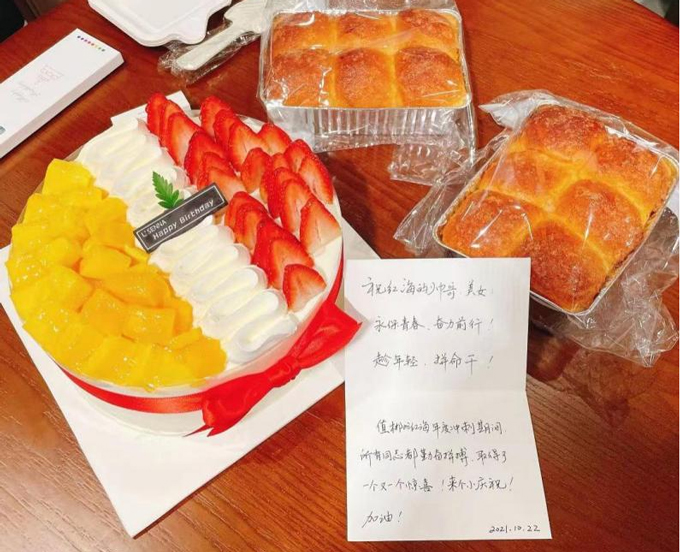 L'SENNA
Happy Birthday
祝红海的帅哥 美女:
永保青春、奋力前行!
趁年轻、拼命干!
值郴州红海年度冲刺期间,
所有同志都勤奋拼搏、取得了
一个又一个惊喜!来个小庆祝!
加油!
2021.10.22